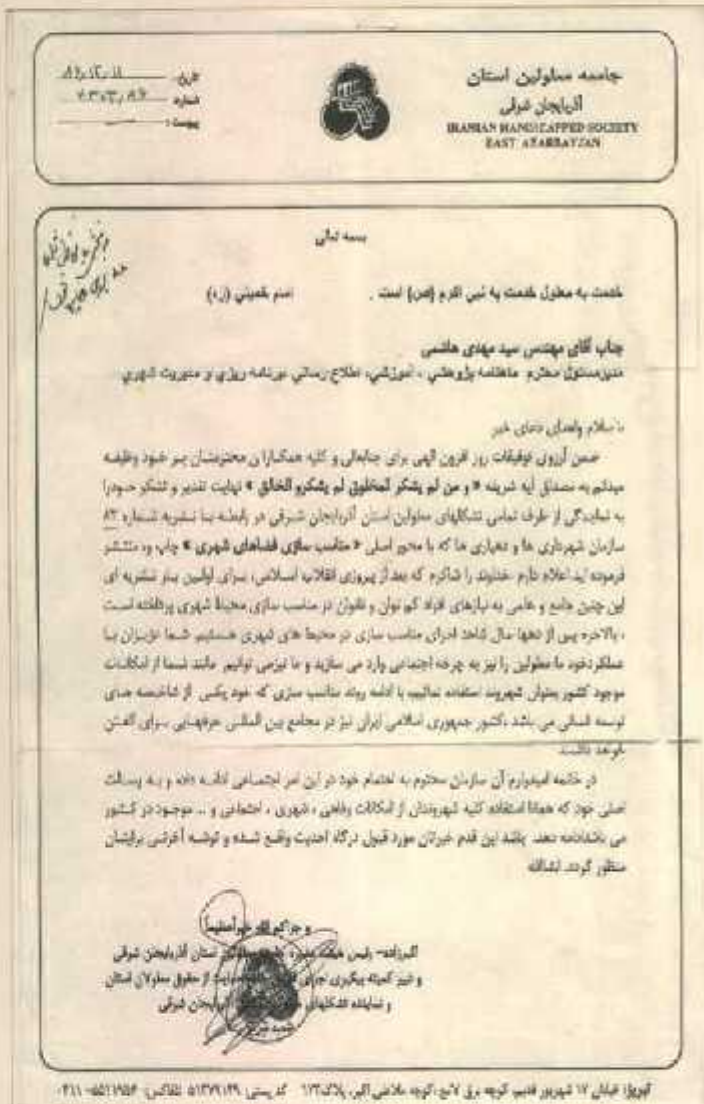 جامعه معلولین استان
آذربایجان شرقی
IRANIAN HANDICAPPED SOCIETY
EAST AZARBAYJAN
تاریخ:
شماره
پیوست:
بسمه تعالی
خدمت به معلول خدمت به نبی اکرم (ص) است . امام خمینی (ره)
جناب آقای مهندس سید مهدی هاشمی
مدیرمسئول محترم ماهنامه پژوهشی ، آموزشی، اطلاع رسانی برنامه ریزی و مدیریت شهری
با سلام واهدای دعای خیر
ضمن آرزوی توفیقات روز افزون الهی برای جنابعالی و کلیه همکاران محترمتان بر خود وظیفه
میدانم به مصداق آیه شریفه « و من لم یشکر المخلوق لم یشکرو الخالق » نهایت تقدیر و تشکر خودرا
به نمایندگی از طرف تمامی تشکلهای معلولین استان آذربایجان شرقی در رابطه با نشریه شماره ۸۳
سازمان شهرداری ها و دهیاری ها که با محور اصلی « مناسب سازی فضاهای شهری » چاپ و منتشر
فرموده اید اعلام دارم .خداوند را شاکرم که بعد از پیروزی انقلاب اسلامی، برای اولین بار نشریه ای
این چنین جامع و علمی به نیازهای افراد کم توان و ناتوان در مناسب سازی محیط شهری پرداخته است
، بالاخره پس از دهها سال شاهد اجرای مناسب سازی در محیط های شهری هستیم شما عزیزان با
عملکردخود ما معلولین را نیز به چرخه اجتماعی وارد می سازید و ما نیزمی توانیم مانند شما از امکانات
موجود کشور بعنوان شهروند استفاده نمائیم، با ادامه روند مناسب سازی که خود یکی از شاخصه های
توسعه انسانی می باشد ،کشور جمهوری اسلامی ایران نیز در مجامع بین المللی حرفهایی برای گفتن
خواهد داشت.
در خاتمه امیدوارم آن سازمان محترم به اهتمام خود در این امر اجتماعی ادامه داده و به رسالت
اصلی خود که همانا استفاده کلیه شهروندان از امکانات رفاهی ، شهری ، اجتماعی و .. موجود در کشور
می باشدادامه دهد. باشد این قدم خیرتان مورد قبول درگاه احدیت واقع شده و توشه آخرتی برایتان
منظور گردد. انشاالله
و جزاکم الله خیرأعظیماً
اکبرزاده- رئیس هیئت مدیره معلولین استان آذربایجان شرقی
و دبیر کمیته پیگیری اجرای از حقوق معلولان استان
و نماینده تشکلهای آذربایجان شرقی
تبریز: خیابان ۱۷ شهریور قدیم، کوچه برق لامع ،کوچه ملاعلی اکبر، پلاک ۱/۲۳ کد پستی: ۵۱۳۷۹۱۴۹ تلفاکس: ۵۵۱۱۹۵۶-۰۴۱۱